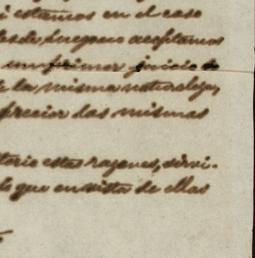 i estamos en el caso
desde luego no aceptamos
un primer juicio de
de la misma naturaleza,
preciar las mismas
torio estas razones, servi-
lo que en vista de ellas